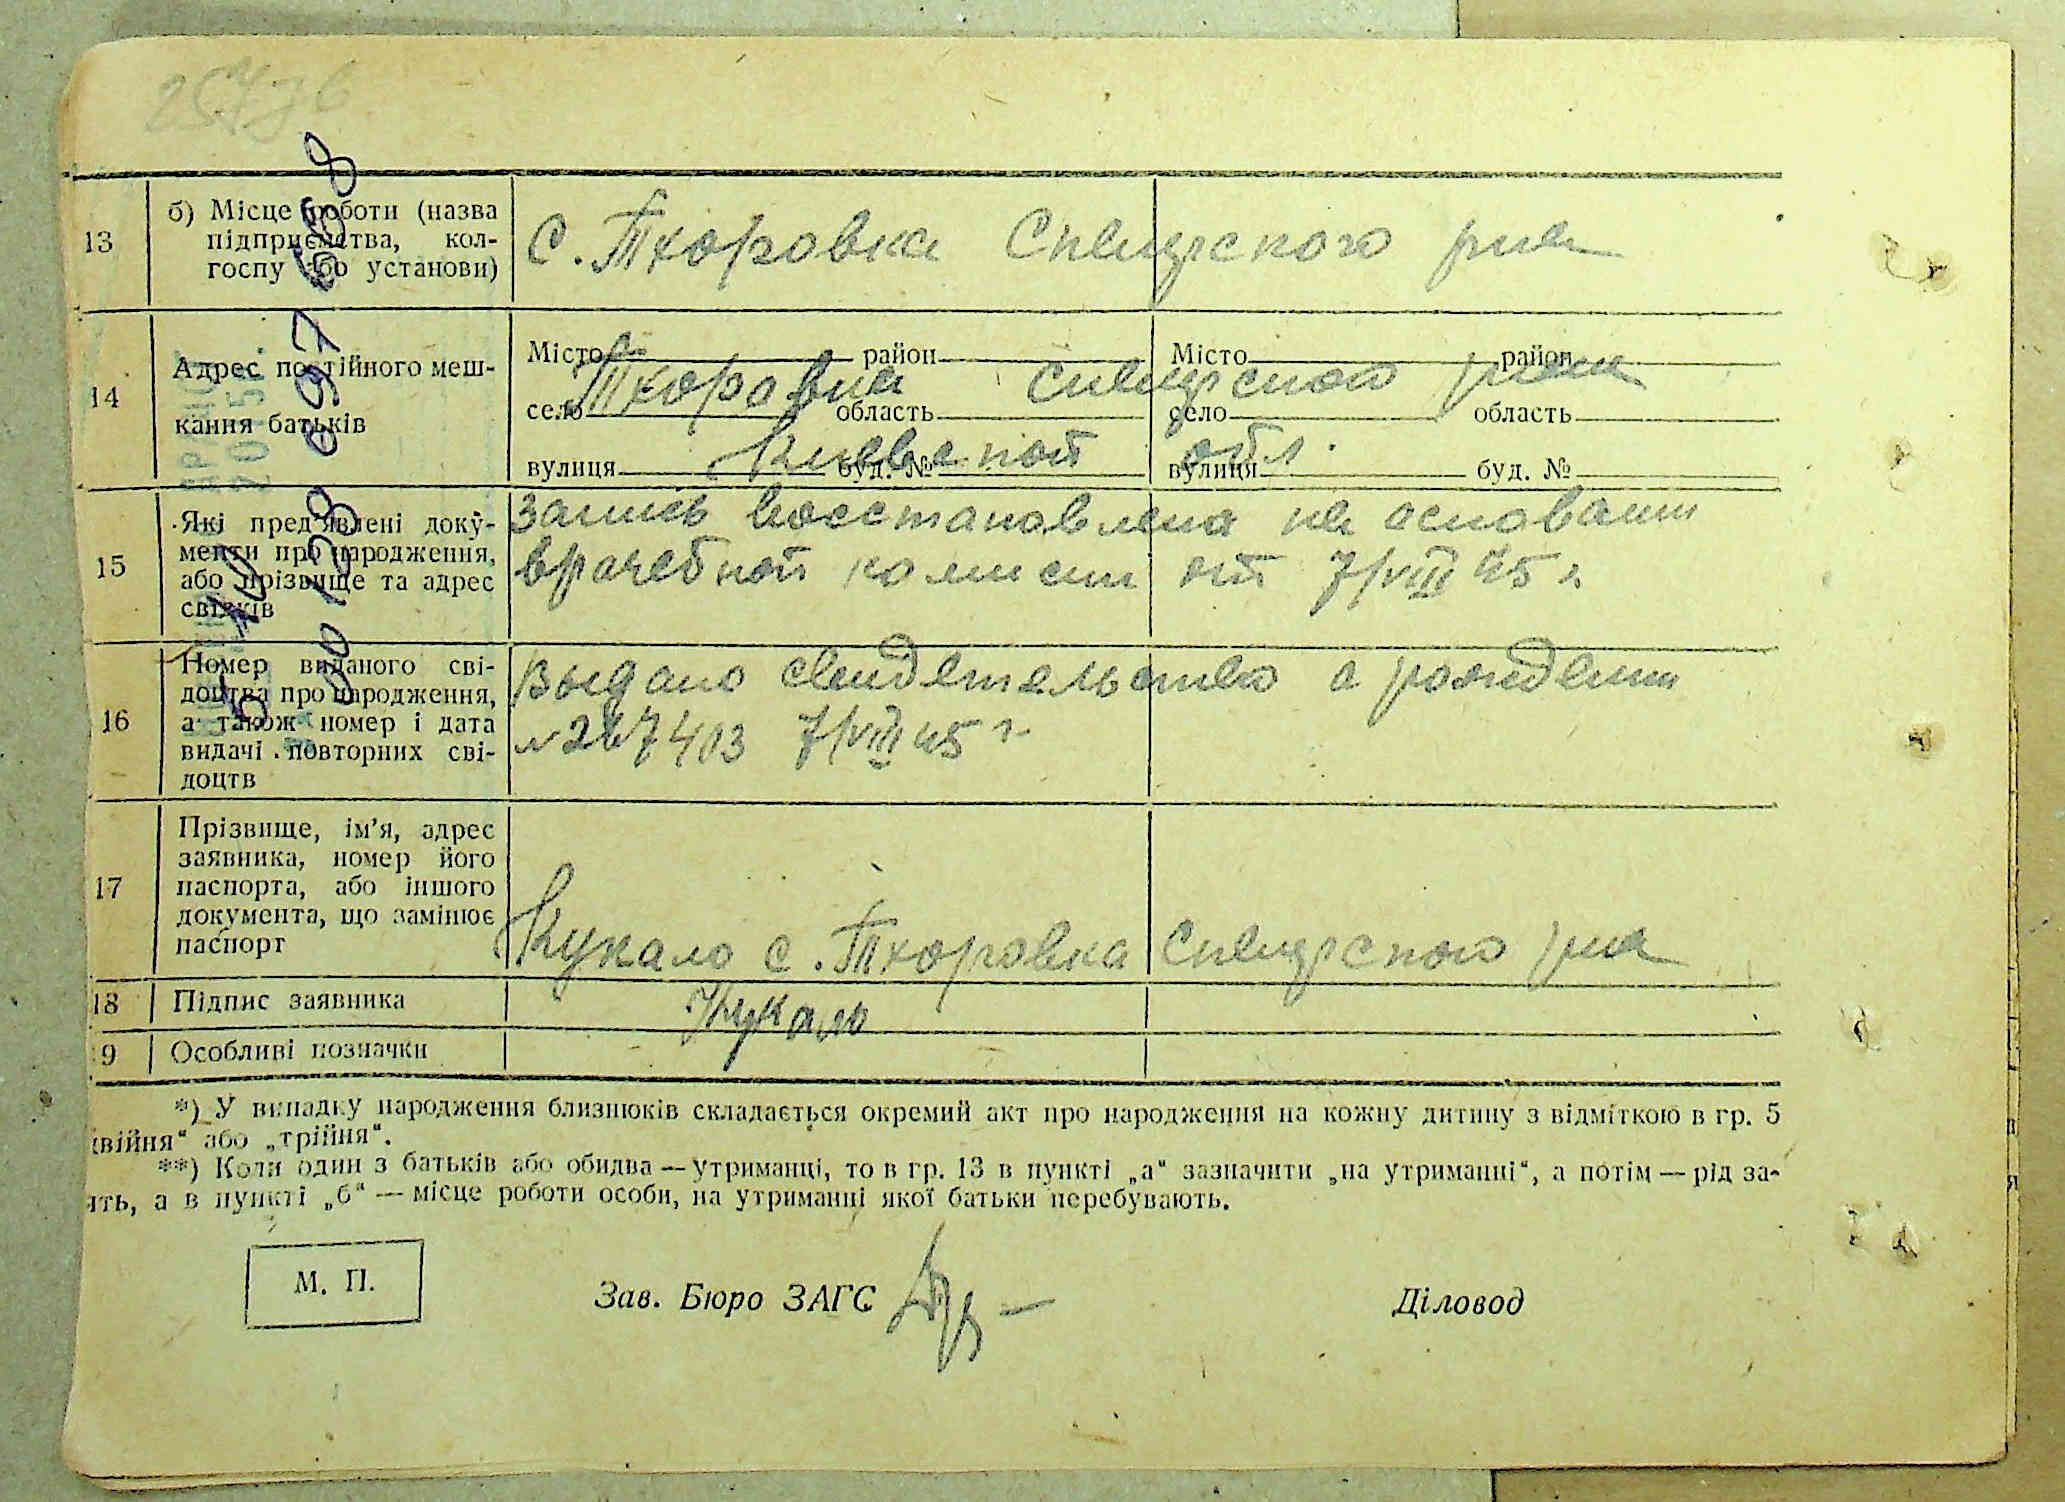 13
б) Місце роботи (назва
підприємства, кол-
госпу або установи)
с. Тхоровка Сквирского р-на
14
Адрес постійного меш-
кання батьків
Місто район Місто район
Тхоровка Сквирского р-на
село область село область
Киевской обл.
вулиця буд. № вулиця буд. №
15
Які пред'явлені доку-
менти про народження,
або прізвище та адрес
свідків
Запись восстановлена на основании
врачебной комисии от 7/VIII 45 г.
16
Номер виданого сві-
доцтва про народження,
а також номер і дата
видачі повторних сві-
доцтв
Выдано свидетельство о рождении
№ 267403 7/VIII 45 г.
17
Прізвище, ім'я, адрес
заявника, номер його
паспорта, або іншого
документа, що замінює
паспорт
Кукало с. Тхоровка Сквирского р-на
18
Підпис заявника
Кукало
9
Особливі позначки
*) У випадку народження близнюків складається окремий акт про народження на кожну дитину з відміткою в гр. 5
війня“ або „трійня“.
**) Коли один з батьків або обидва — утриманці, то в гр. 13 в пункті „а“ зазначити „на утриманні“, а потім — рід за-
ять, а в пункті „б“ — місце роботи особи, на утриманні якої батьки перебувають.
М. П.
Зав. Бюро ЗАГС
Діловод